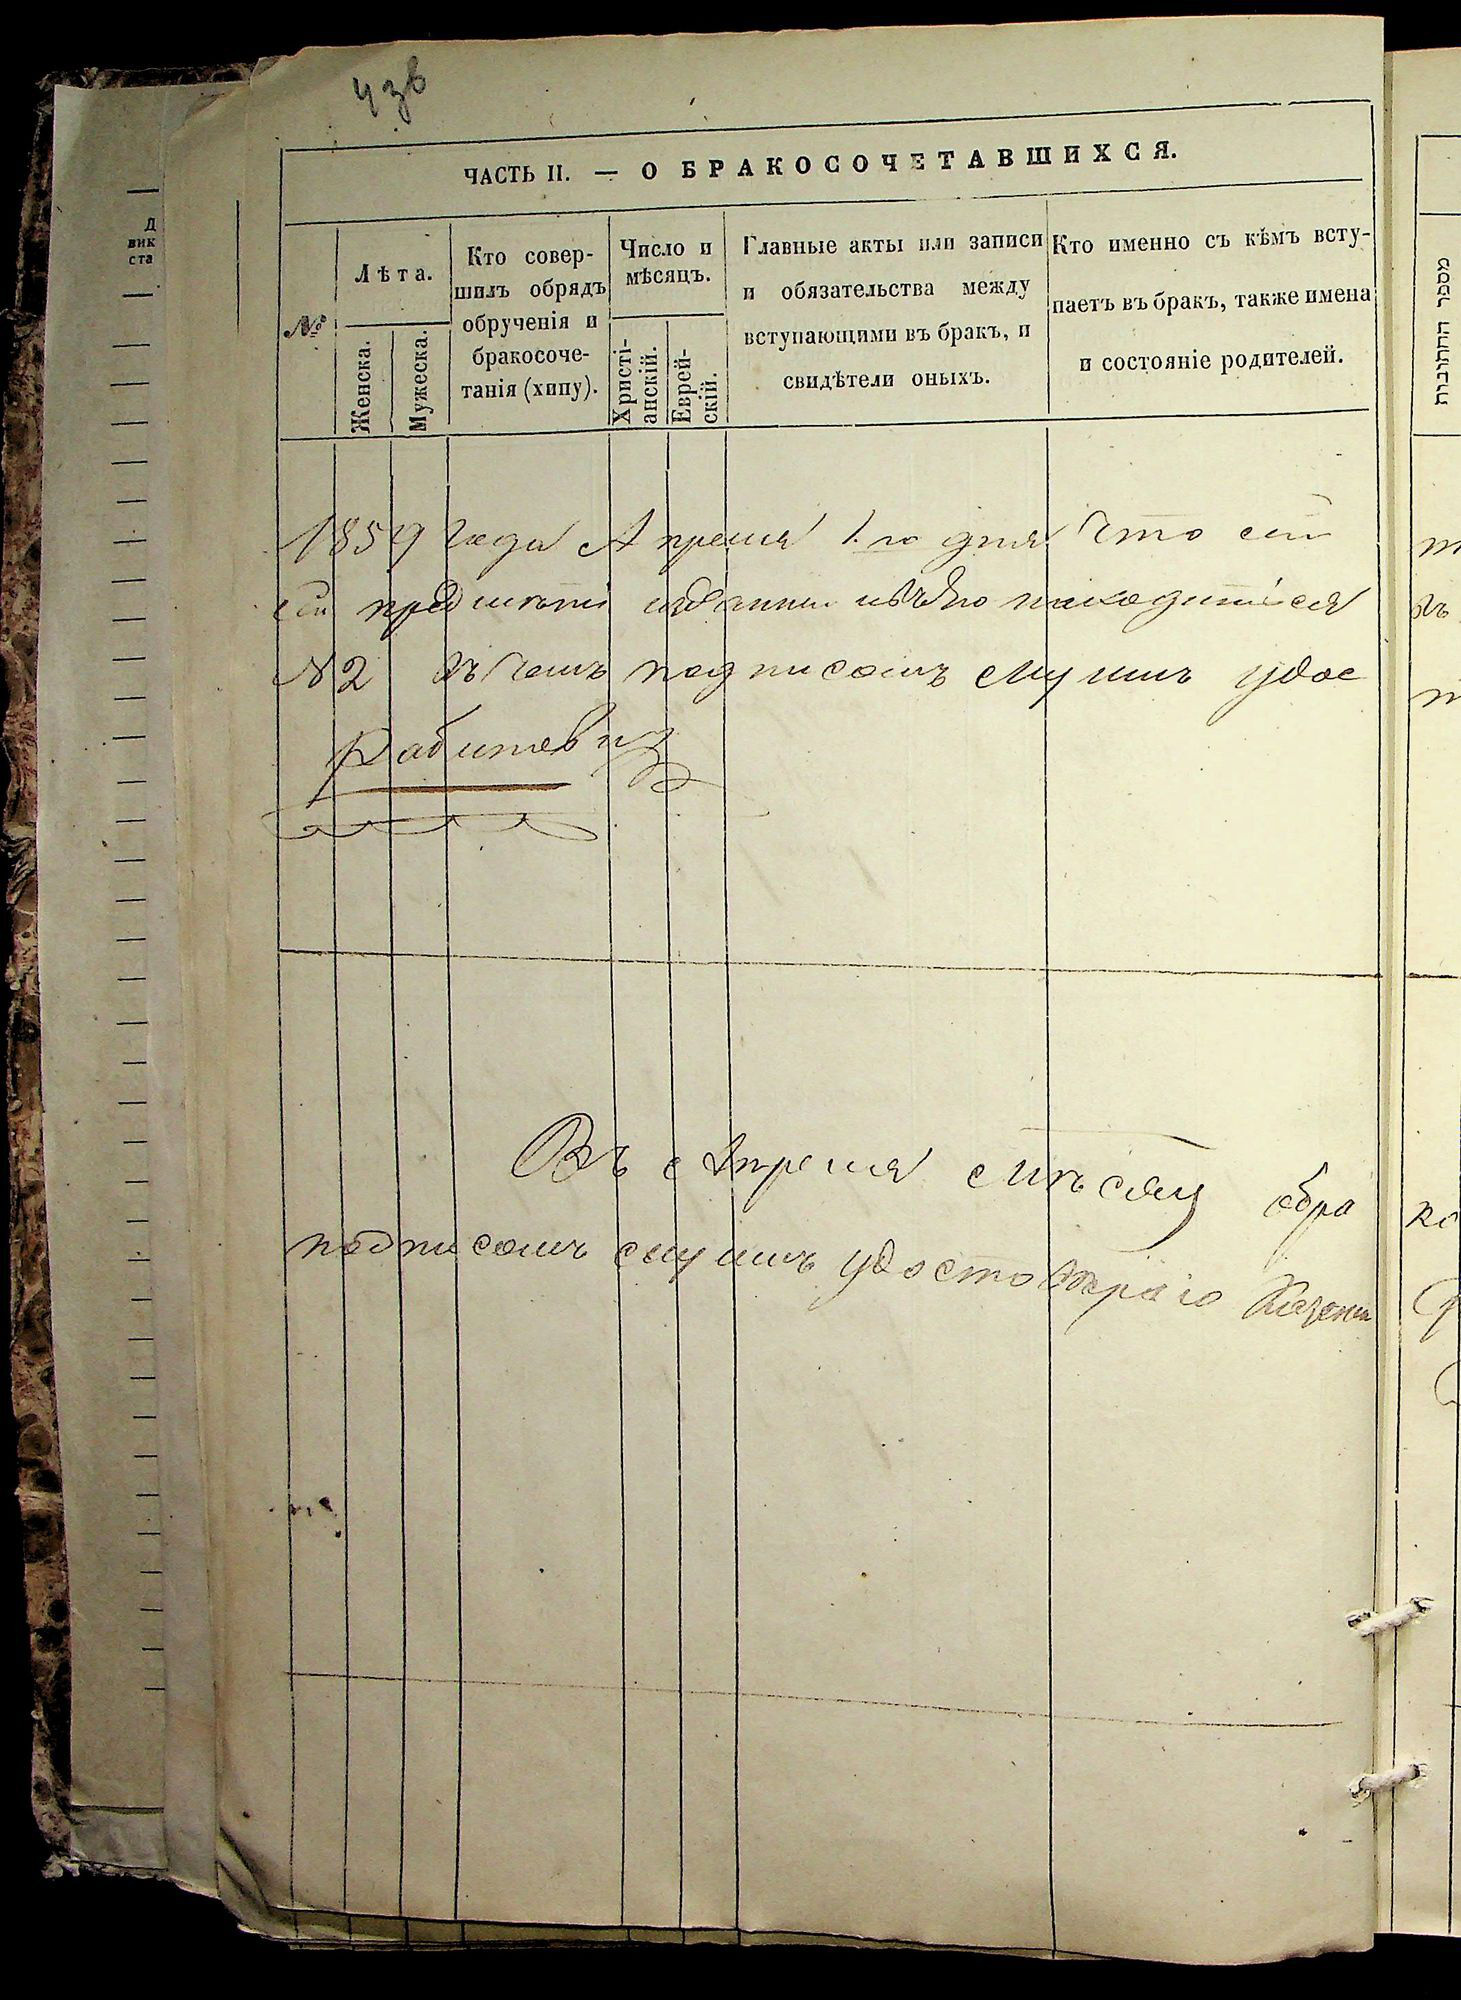 ЧАСТЬ II. — О БРАКОСОЧЕТАВШИХСЯ.
№
Лѣта.
Женска.
Мужеска.
Кто совер-
шилъ обрядъ
обрученія и
бракосоче-
танія (хипу).
Число и
мѣсяцъ.
Христі-
анскій.
Еврей-
скій.
Главные акты или записи
и обязательства между
вступающими въ бракъ, и
свидѣтели оныхъ.
Кто именно съ кѣмъ всту-
паетъ въ бракъ, также имена
и состояніе родителей.
1859 года Апреля 1го дня что
№ 2 въ чемъ подписомъ смуимъ удос
Рабинович
Въ Апреля мѣсяц обра
подписомъ смуимъ удостовѣраю Казенн
Д
вик
ста
מספר החתונות